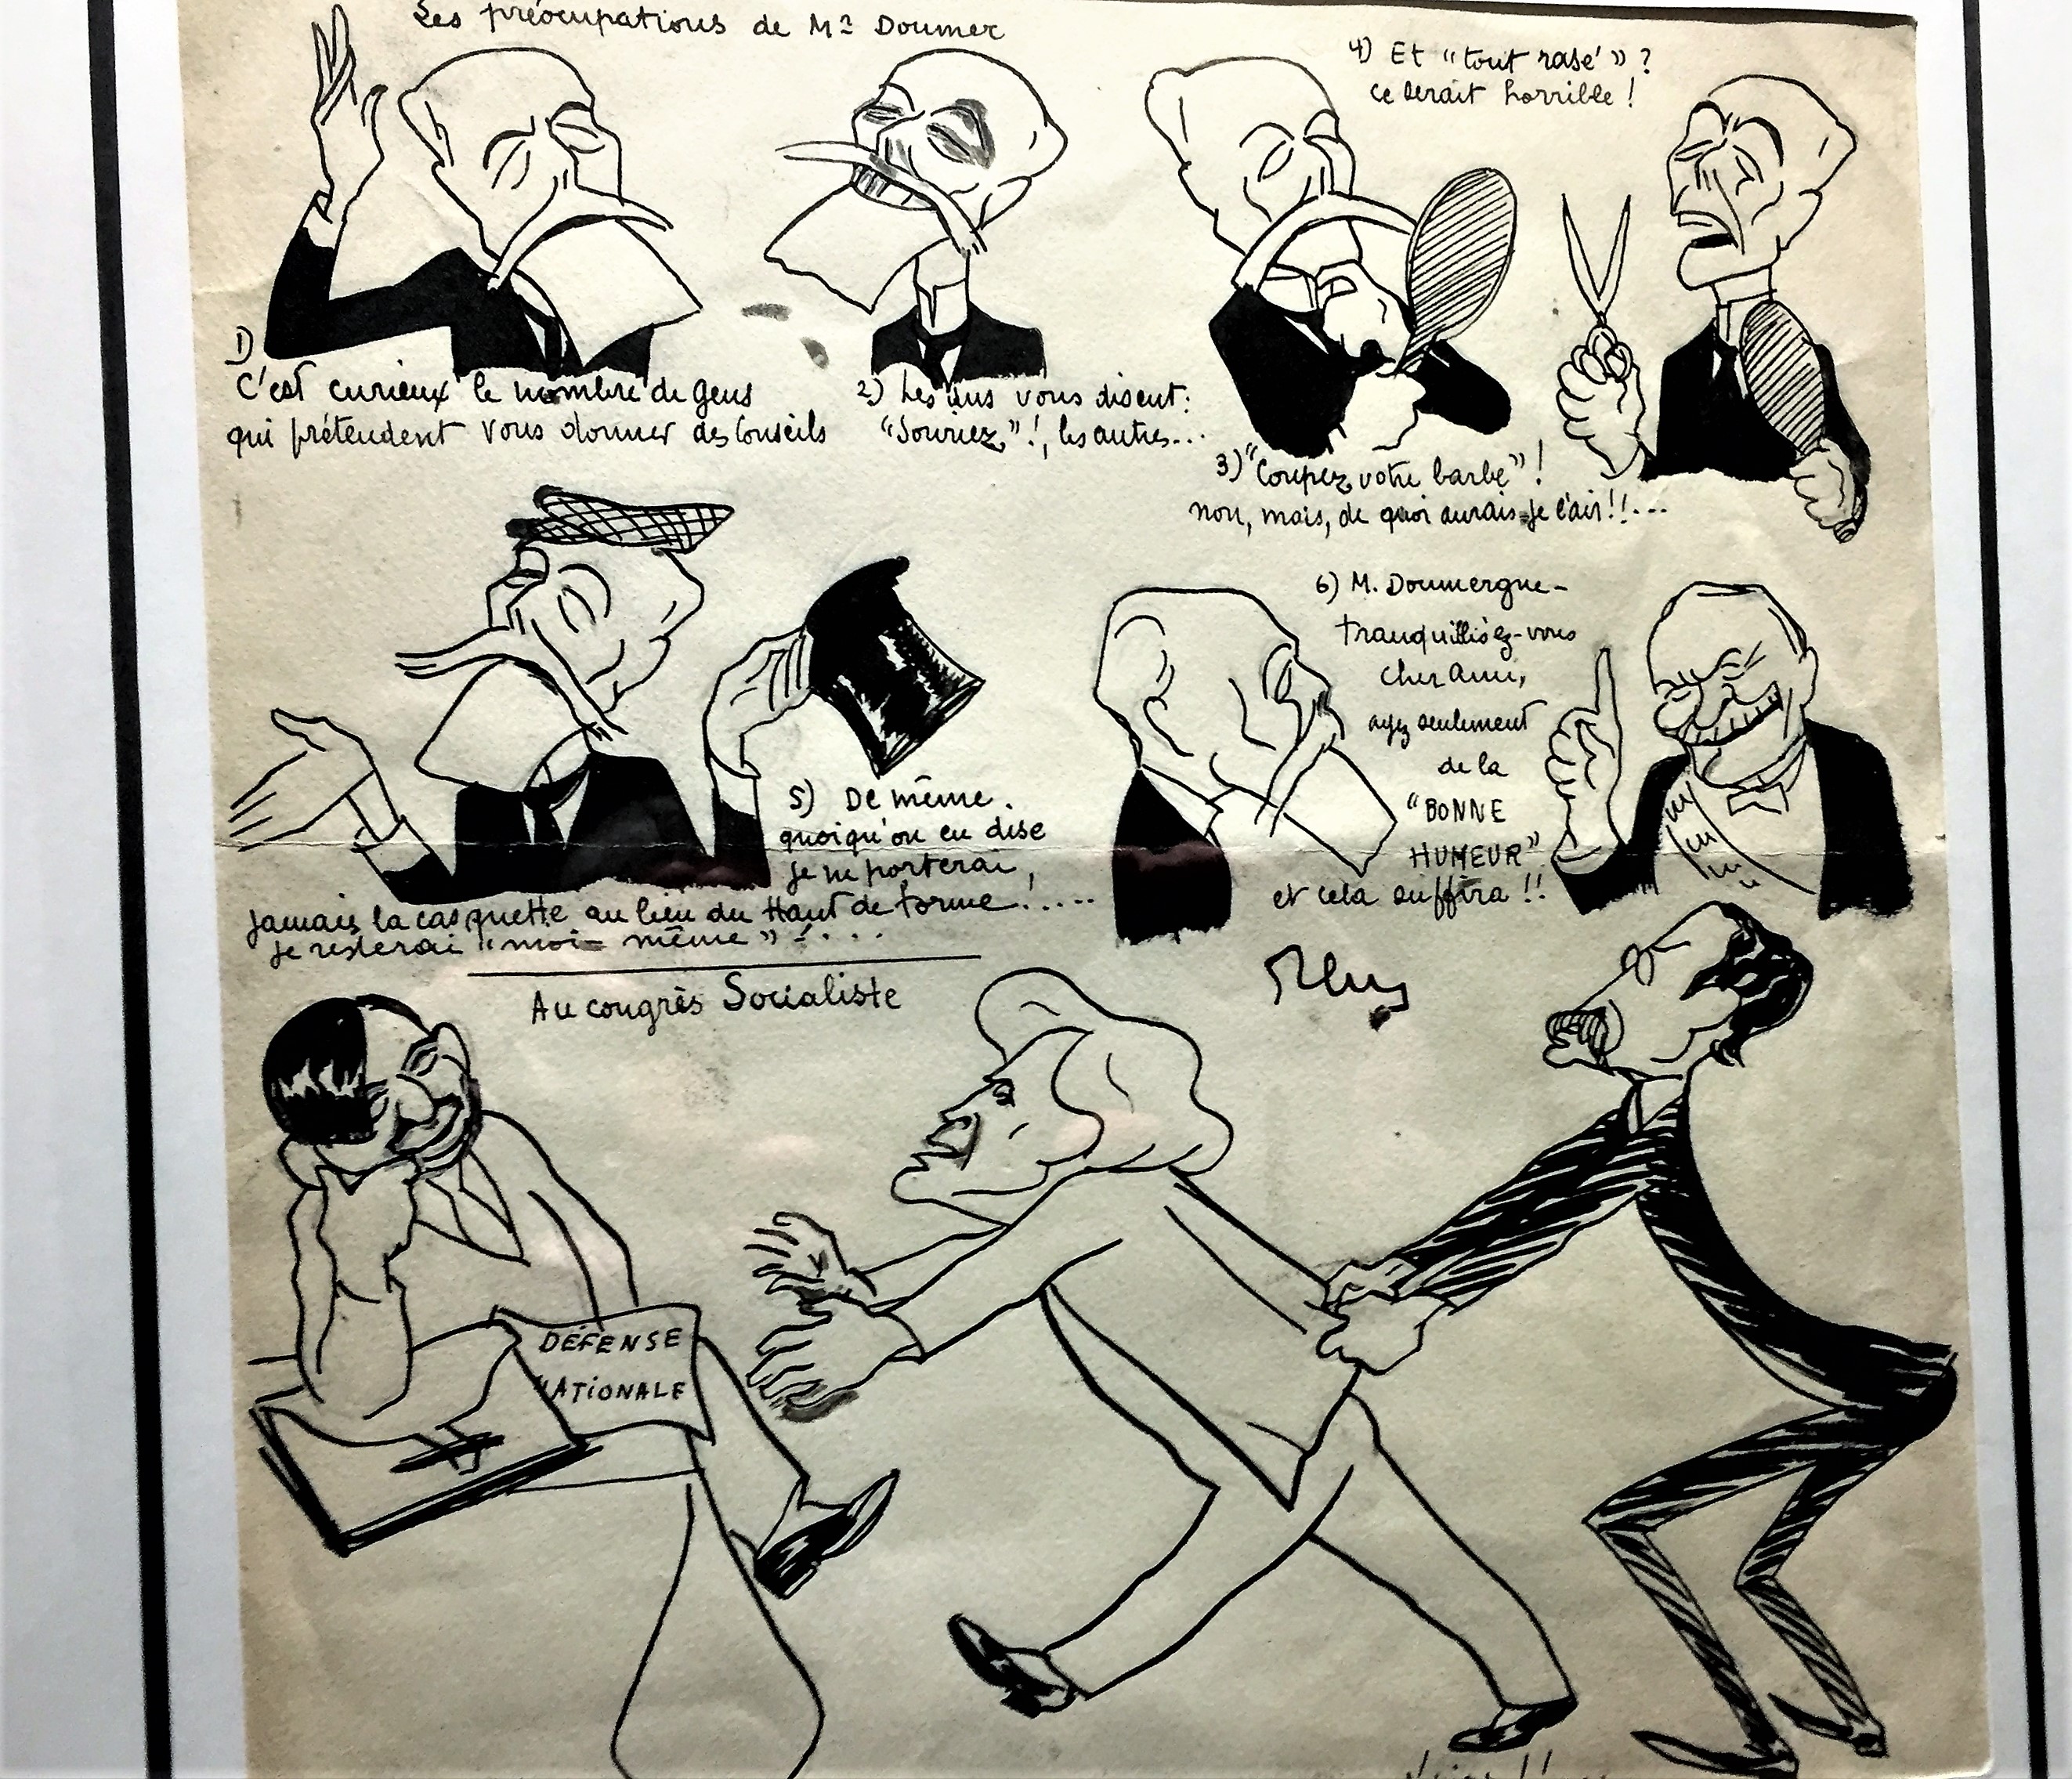 Les préocupations de Mr Doumer
1)
C'est curieux le nombre de gens
qui prétendent vous donner des Conseils
2) Les uns vous disent:
"Souriez"!, les autres...
3) "Coupez votre barbe"!
non, mais, de quoi aurais-je l'air!!...
4) Et "tout rasé"?
ce serait horrible!
5) De même.
quoiqu'on en dise
je ne porterai,
jamais la casquette au lieu du Haut de forme!.....
je resterai "moi-même"!...
6) M. Doumergue-
tranquillisez-vous
cher ami,
ayez seulement
de la
"BONNE
HUMEUR"
et cela suffira!!
Au congrès Socialiste
DÉFENSE
NATIONALE